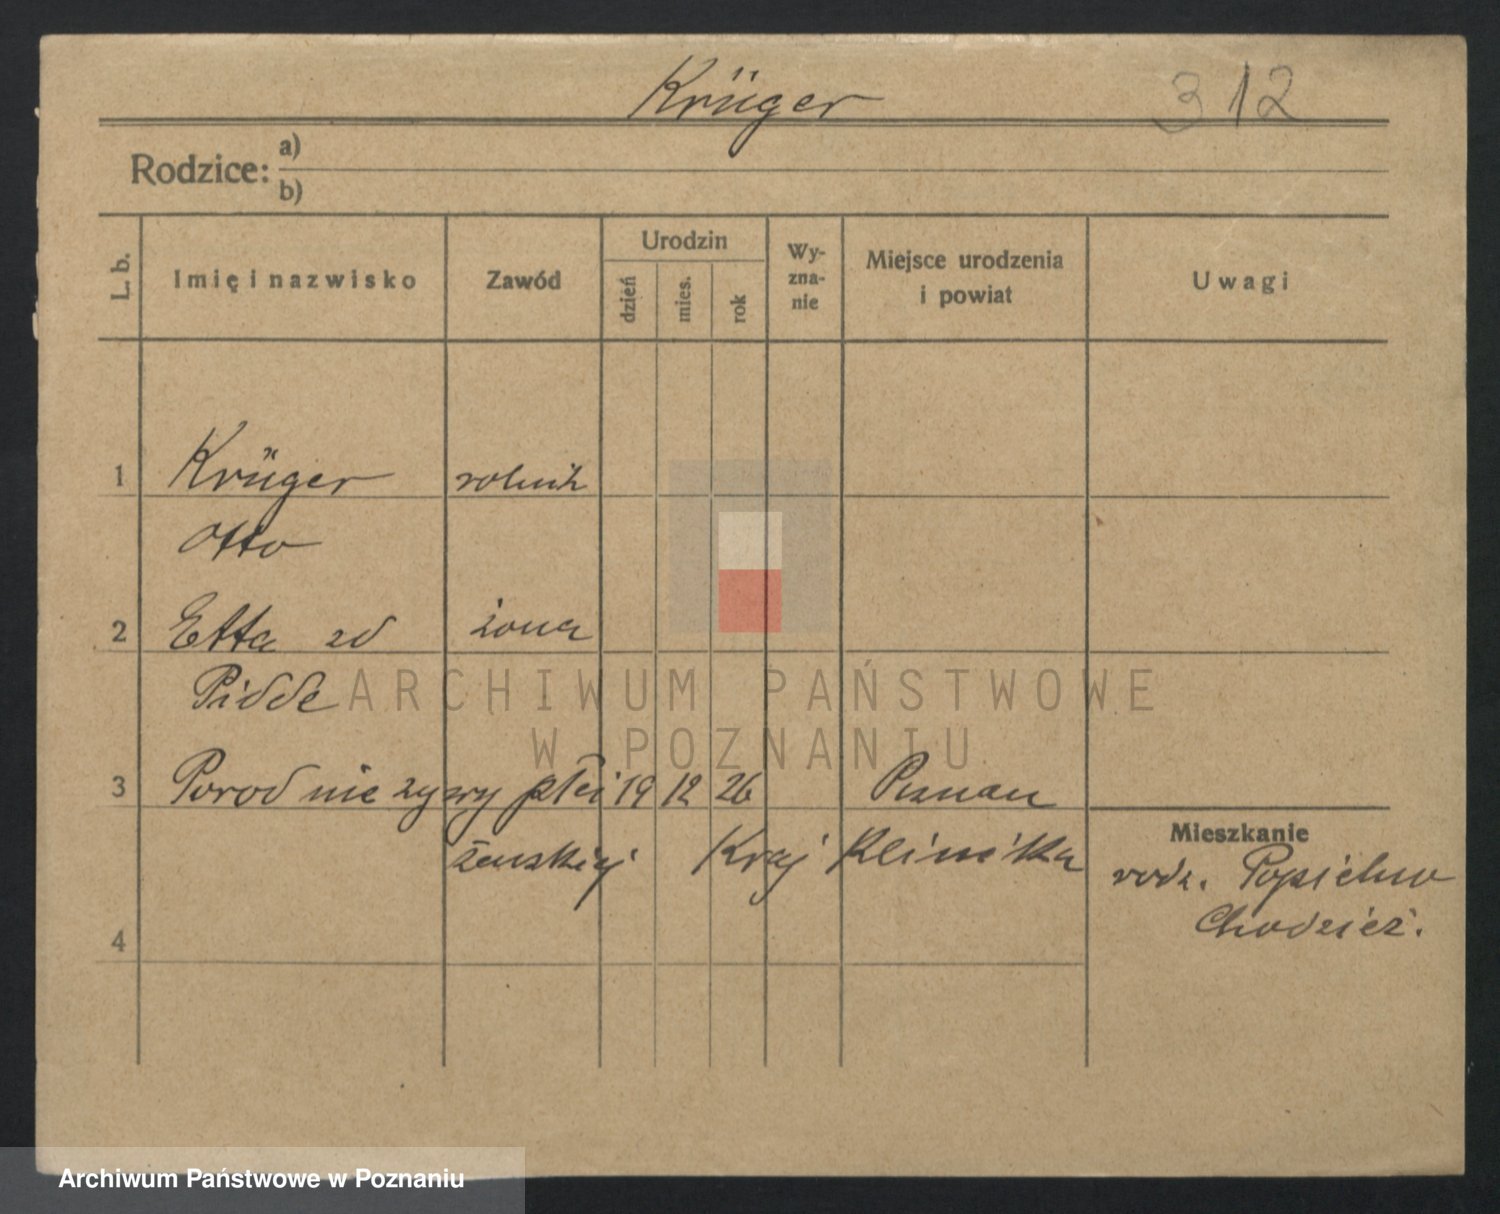 Krüger 312
Rodzice: a)
b)
L. b. Imię i nazwisko Zawód Urodzin dzień mies. rok Wy-zna-nie Miejsce urodzenia i powiat Uwagi
1 Krüger rolnik
Otto
2 Etta zd żona
Pidde
ARCHIWUM PAŃSTWOWE
W POZNANIU
3 Porod nie zywy płci 19 12 26 Poznan
żenskiej Kraj Klinika
Mieszkanie
rodz.
Chodzież.
4
Archiwum Państwowe w Poznaniu